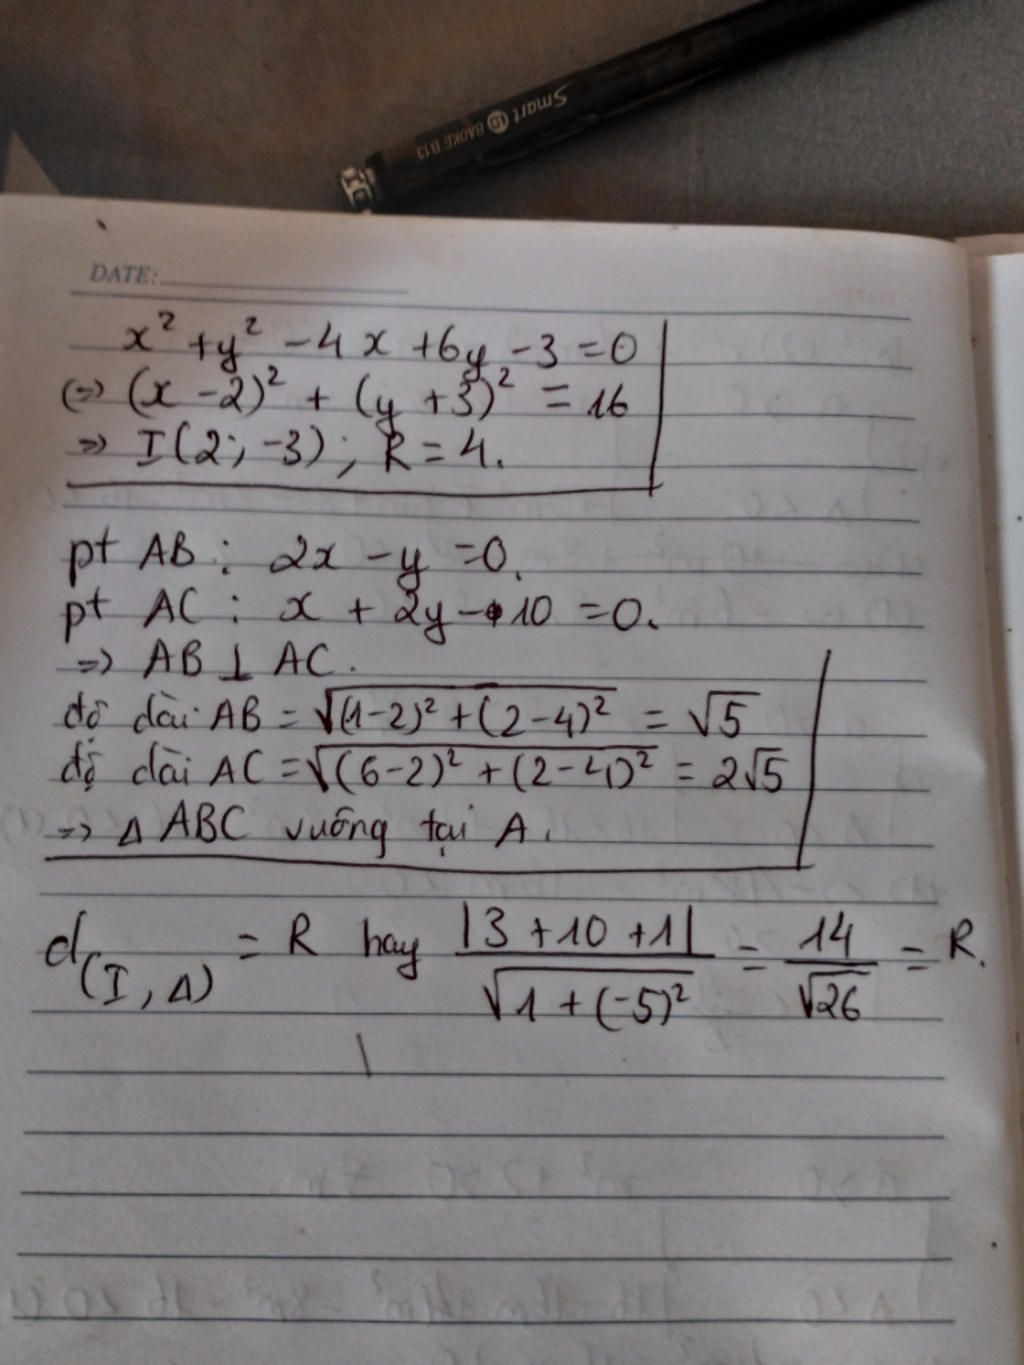 Smart LG BAOKE B13
DATE:
x² + y² - 4x + 6y - 3 = 0
(=) (x - 2)² + (y + 3)² = 16
=> I(2; -3); R = 4.
pt AB : 2x - y = 0.
pt AC : x + 2y - 10 = 0.
=> AB ⊥ AC.
độ dài AB = √((1-2)² + (2-4)²) = √5
độ dài AC = √((6-2)² + (2-4)²) = 2√5
=> Δ ABC vuông tại A.
d(I, Δ) = R hay |3 + 10 + 1| / √(1 + (-5)²) = 14/√26 = R.